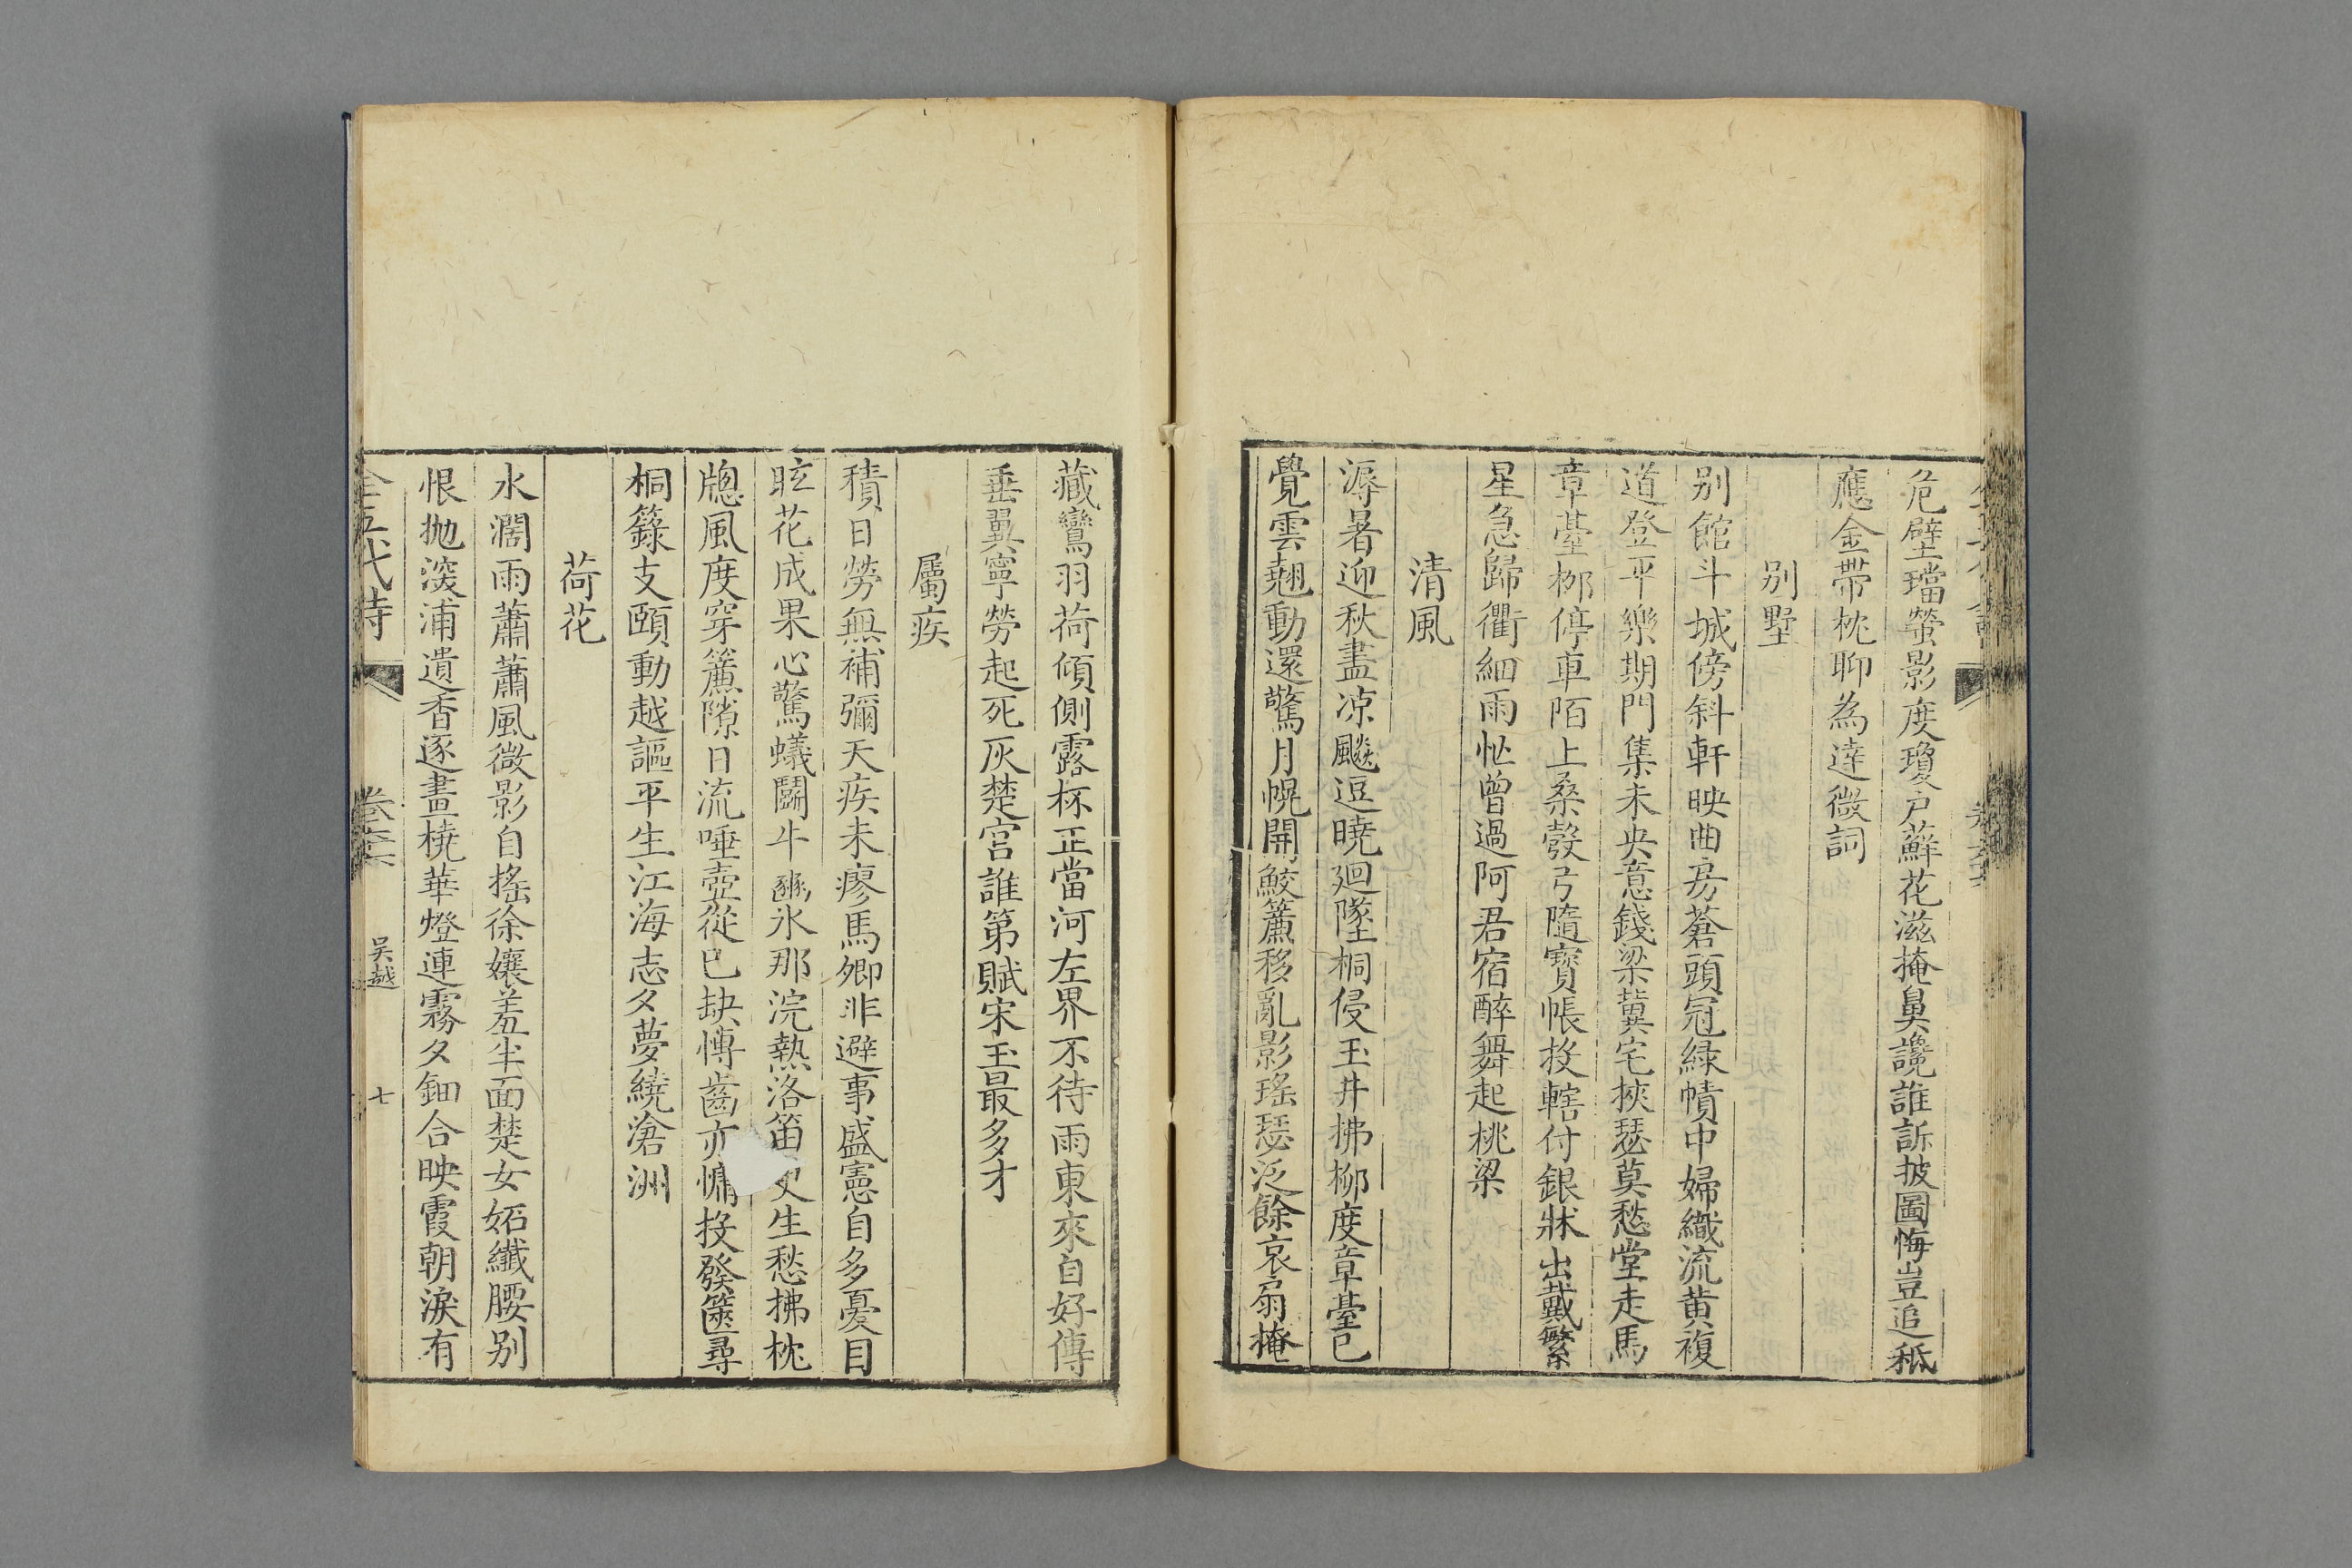 危壁璫螢影度瓊戶蘚花滋掩鼻讒誰訴披圖悔豈追秪
應金帶枕聊為達微詞
別墅
別館斗城傍斜軒映曲房蒼頭冠綠幘中婦織流黄複
道登平樂期門集未央意錢梁冀宅挾瑟莫愁堂走馬
章臺栁停車陌上桑彀弓隨寶帳投轄付銀牀出戴繁
星急歸衝細雨忙曾過阿君宿醉舞起桃梁
清風
溽暑迎秋盡凉飇逗曉廻墜桐侵玉井拂柳度章臺已
覺雲翹動還驚月幌開鮫簾移亂影瑤瑟泛餘哀扇掩
藏鸞羽荷傾側露杯正當河左界不待雨東來自好傳
垂翼寧勞起死灰楚宫誰第賦宋玉最多才
屬疾
積日勞無補彌天疾未瘳馬卿非避事盛憲自多憂目
眩花成果心驚蟻鬬牛豳氷那浣熱洛笛更生愁拂枕
牕風度穿簾隙日流唾壺從已缺慱齒亦慵投發篋尋
桐籙支頤動越謳平生江海志夕夢繞滄洲
荷花
水濶雨蕭蕭風微影自搖徐孃羞半面楚女妬纖腰别
恨抛淡浦遺香逐畫橈華燈連霧夕鈿合映霞朝淚有
全五代詩
吴越
七